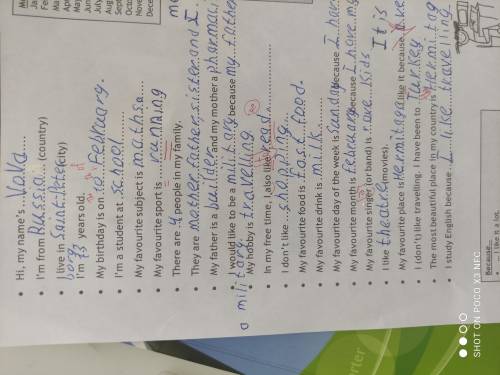 Hi, my name's Vova
I'm from Russia (country)
I live in Saint Peter (city)
burg
I'm 13 years old.
My birthday is on 10 February.
I'm a student at school
My favourite subject is maths
My favourite sport is running
There are 4 people in my family.
They are mother, father, sister and I.
My father is a builder and my mother a pharmaci
I would like to be a military because my father
a military.
My hobby is travelling
In my free time, I also like read
I don't like shopping
My favourite food is fast food.
My favourite drink is milk
My favourite day of the week is sunday because I
My favourite month is because I have my
My favourite singer (or band) is rave kids
I like theatre (movies). It is
My favourite place is Hermitage I like it because
I (don't) like travelling. I have been to Turkey
The most beautiful place in my country is Hermitag
I study English because I like travelling
Because
... I like it a lot.
SHOT ON POCO X3 NFC